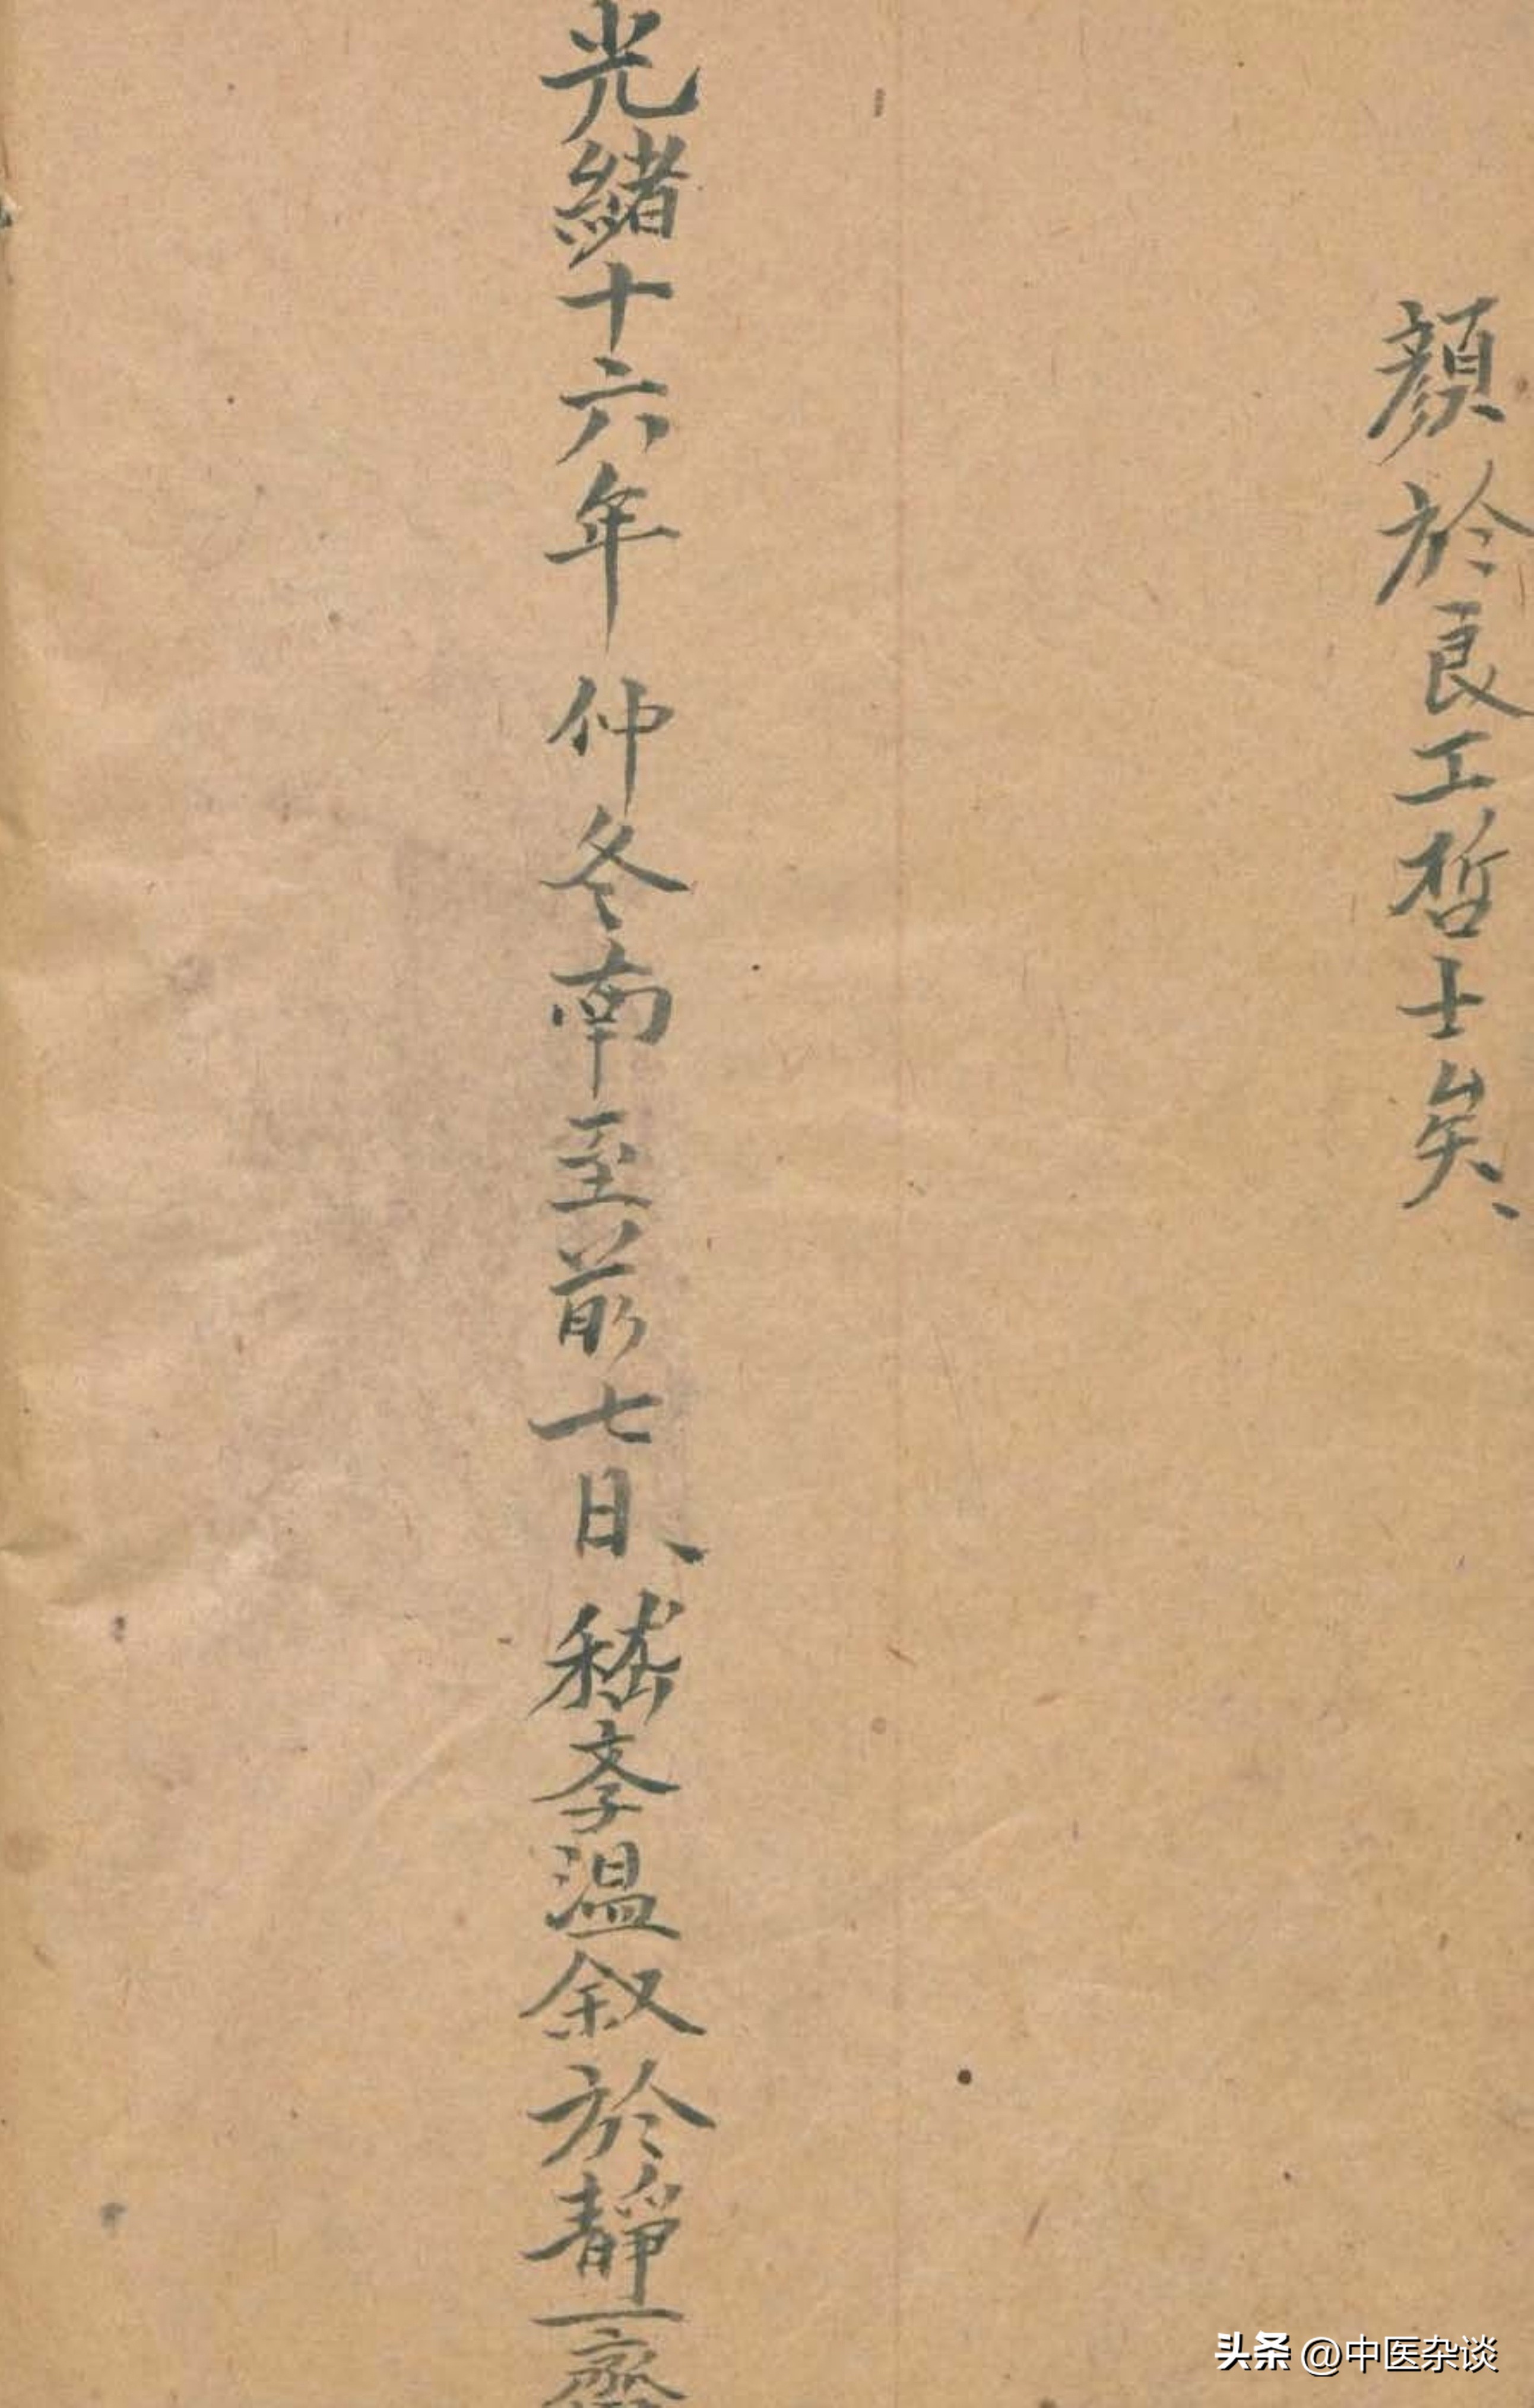 顏於良工哲士矣、
光緒十六年仲冬南至前七日、嵇孝温叙於靜一齋
头条 @中医杂谈